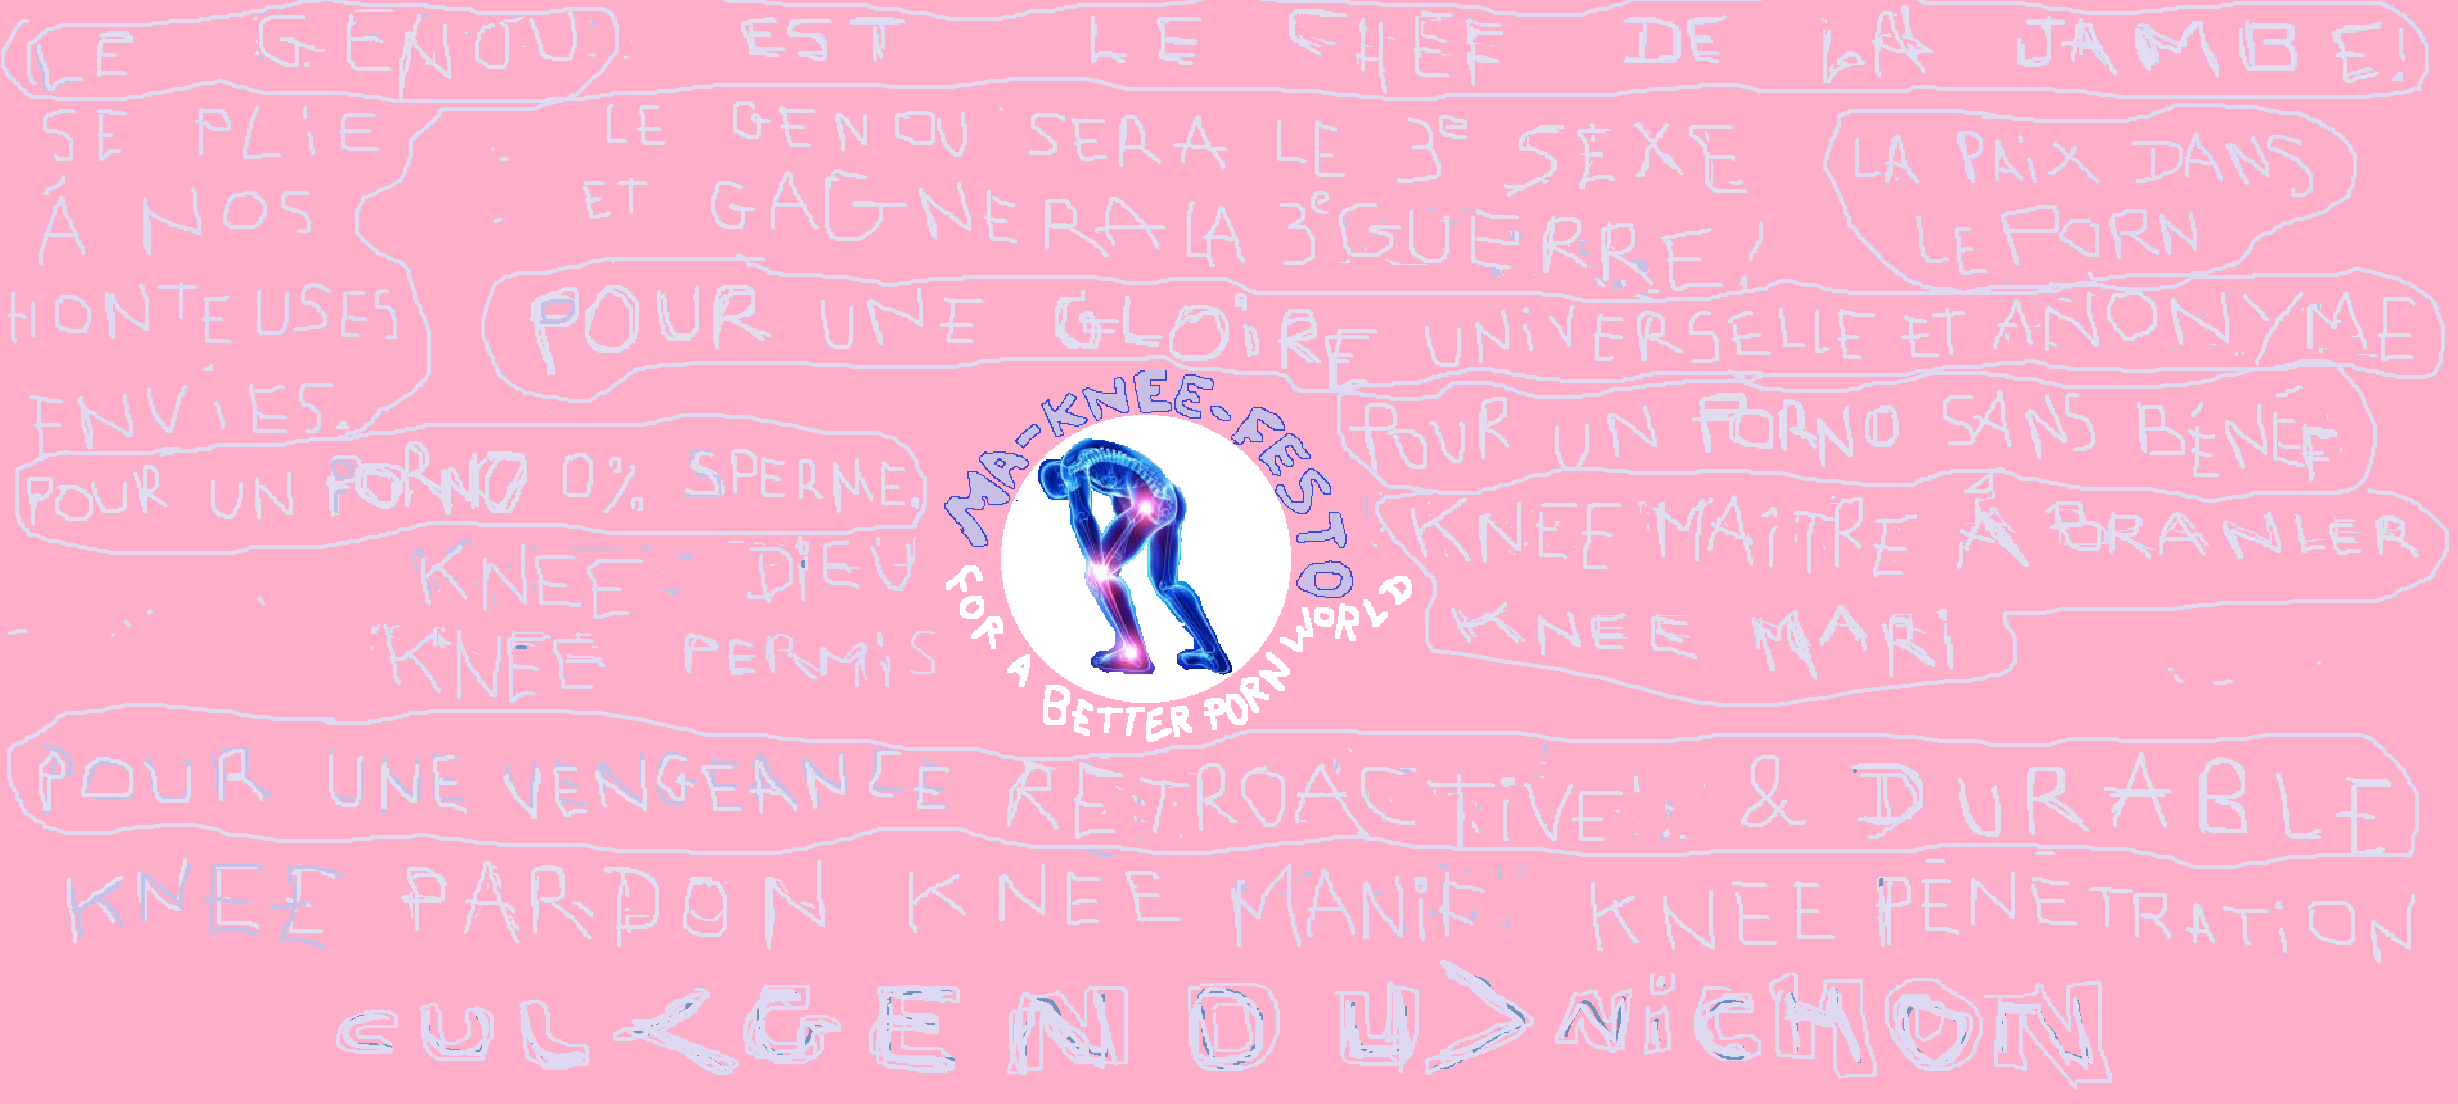 LE GENOU EST LE CHEF DE LA JAMBE!
SE PLIE
À NOS
HONTEUSES
ENVIES.
LE GENOU SERA LE 3e SEXE
ET GAGNERA LA 3e GUERRE!
LA PAIX DANS
LE PORN
POUR UNE GLOIRE UNIVERSELLE ET ANONYME
POUR UN PORNO 0% SPERME.
MA-KNEE-FESTO
FOR A BETTER PORN WORLD
POUR UN PORNO SANS BÉNEF
KNEE DIEU
KNEE PERMIS
KNEE MAiTRE À BRANLER
KNEE MARI
POUR UNE VENGEANCE RETROACTIVE & DURABLE
KNEE PARDON KNEE MANIF KNEE PÉNÉTRATION
CUL<GENOU>NICHON